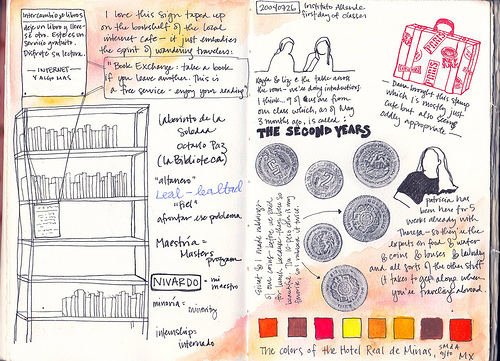 Intercambio de libros
deje un libro y lleve-
se otro. Este es un
servicio gratuito.
Disfrute su lectura
— INTERNET —
Y ALGO MAS
I love this sign taped up
on the bookshelf of the local
internet cafe — it just embodies
the spirit of wandering travelers:
"Book Exchange: take a book
if you leave another. This is
a free service - enjoy your reading"
laberinto de la
Soledad
Octavio Paz
(la Biblioteca)
"altanero"
Leal - lealtad
"fiel"
afrontar ese problema
Maestria =
Masters
program
NIVARDO = mi
maestro
minoria = minority
internship =
internado
20040726
Instituto Allende
first day of classes
Kayla & Liz @ the table across
the room - we're doing introductions
I think... 9 of us are from
our class which, as of May
3 months ago, is called:
THE SECOND YEARS
PARIS
Dana brought this stamp
which is mostly just
cute but also seems
oddly appropriate —
patricia has
been here for 5
weeks already with
Theresa - so they're the
experts on food & water
& coins & buses & laundry
and all sorts of the other stuff
it takes to get along when
you're traveling abroad.
The colors of the Hotel Real de Minas
SMdA
MX